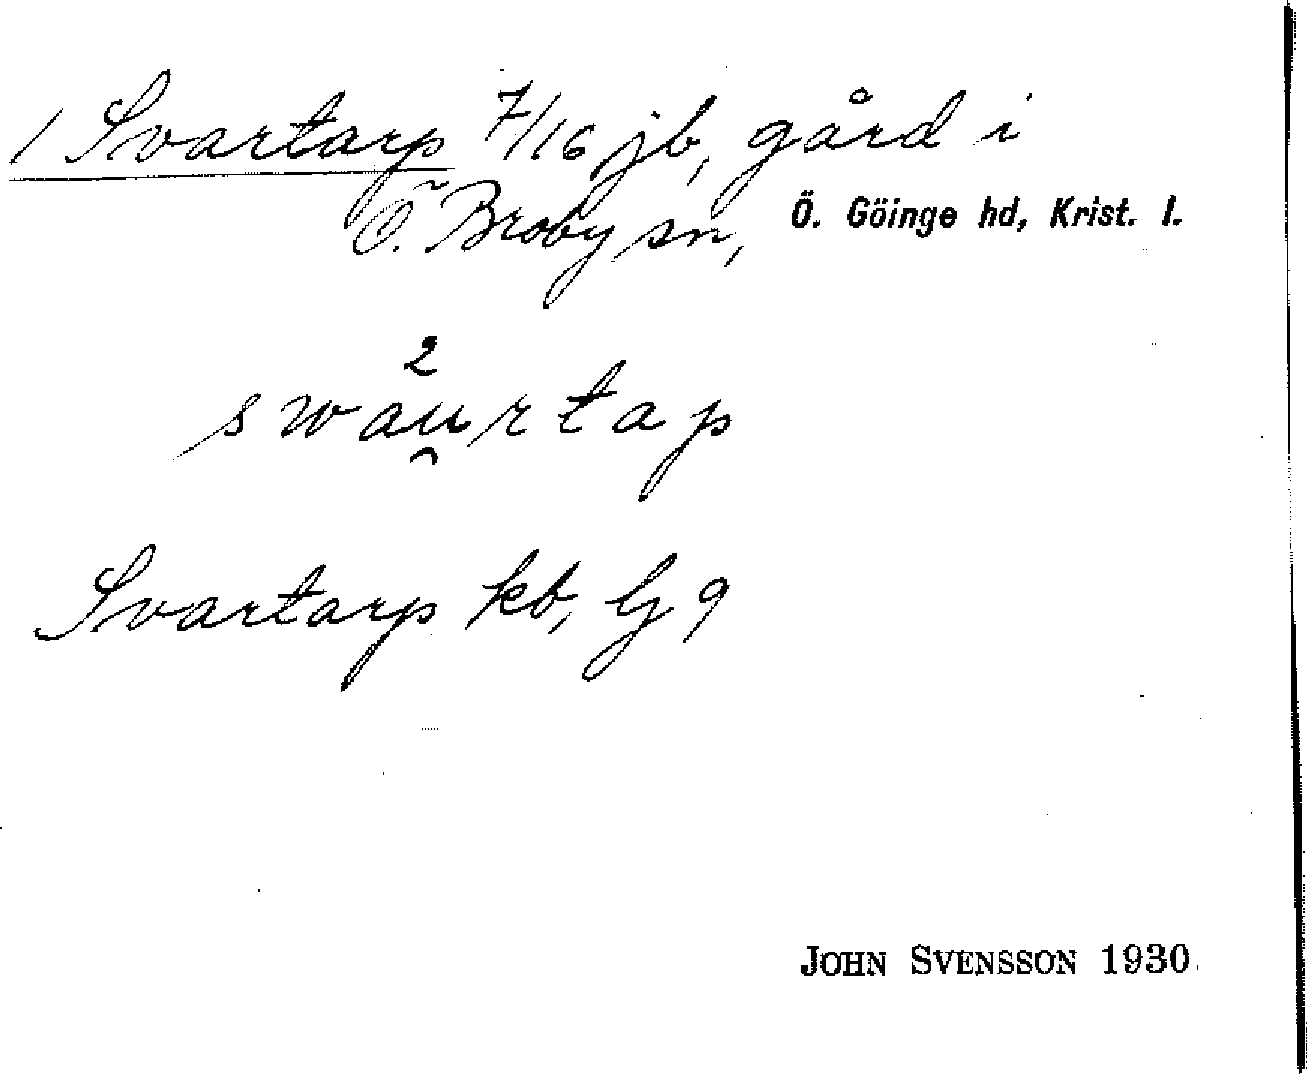 1 Svartarp 7/16 jb, gård i
Ö. Broby sn, Ö. Göinge hd, Krist. l.
2
swau̯rtap
Svartarp kb, Gj 9
JOHN SVENSSON 1930